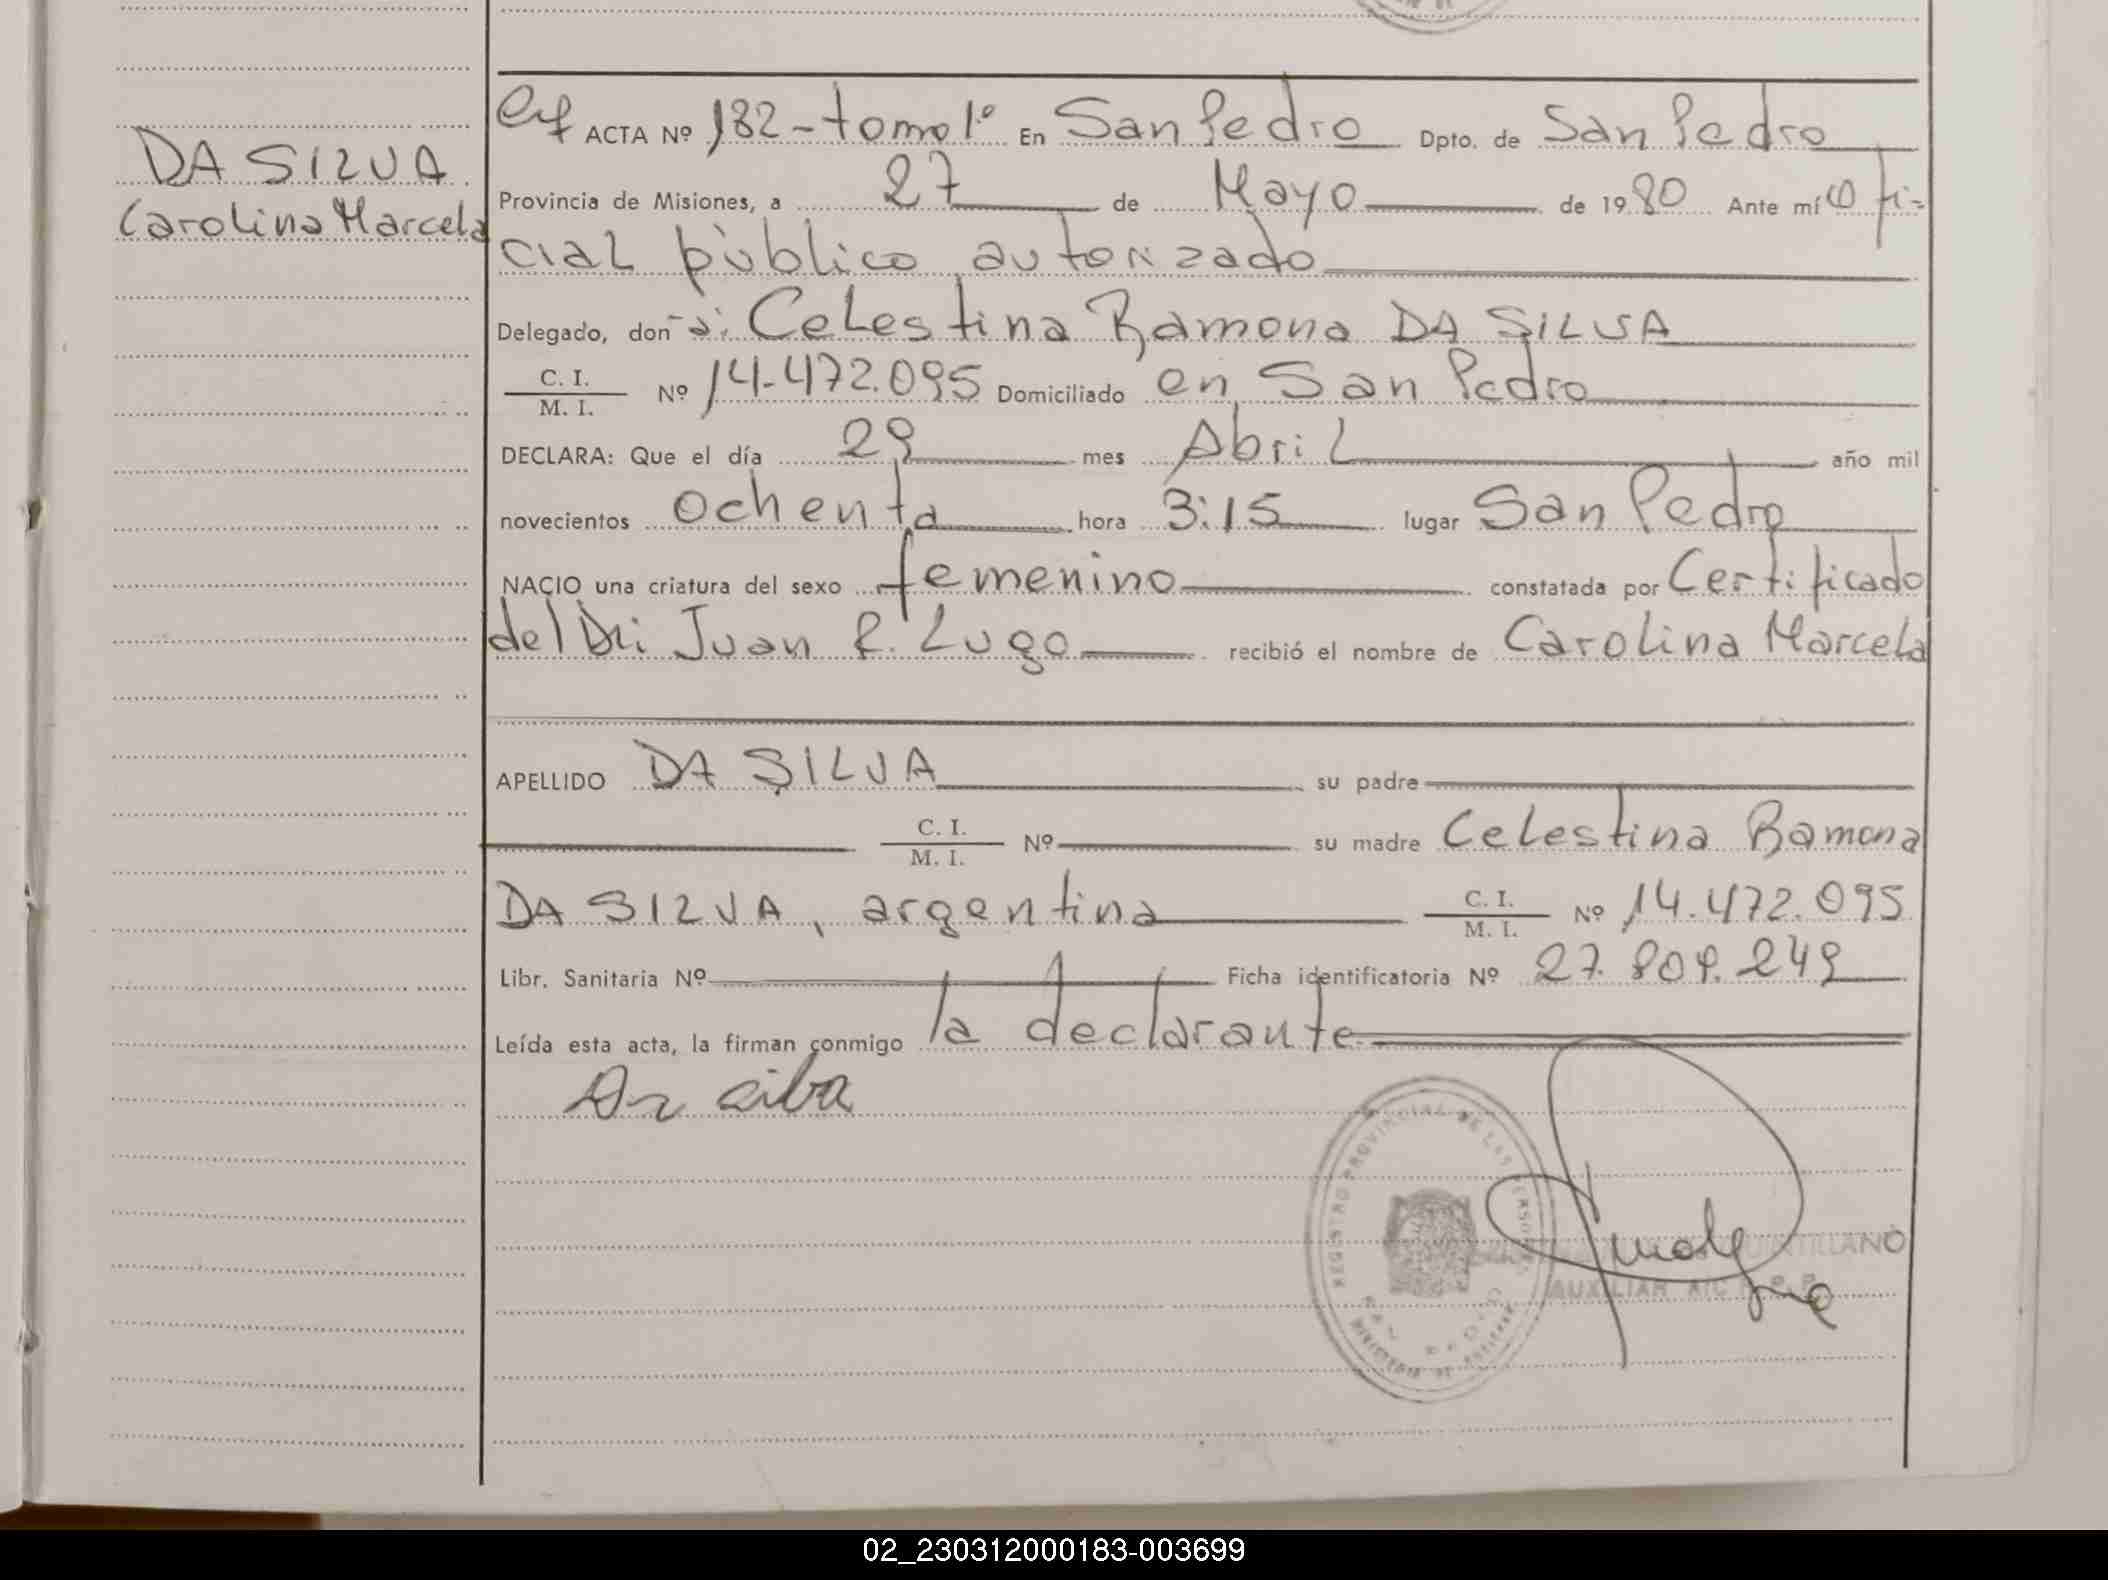 DA SILVA
Carolina Marcela
ACTA Nº 182-tomo 1º En San Pedro Dpto. de San Pedro
Provincia de Misiones, a 27 de Mayo de 1980 Ante mí Ofi-
cial público autorizado
Delegado, don-a: Celestina Ramona DA SILVA
C. I.
M. I. Nº 14.472.095 Domiciliado en San Pedro
DECLARA: Que el día 29 mes Abril año mil
novecientos ochenta hora 3:15 lugar San Pedro
NACIO una criatura del sexo femenino constatada por Certificado
del Dr: Juan R. Lugo recibió el nombre de Carolina Marcela
APELLIDO DA SILVA su padre
C. I.
M. I. Nº su madre Celestina Ramona
DA SILVA, argentina C. I.
M. I. Nº 14.472.095
Libr. Sanitaria Nº Ficha identificatoria Nº 27.809.249
Leída esta acta, la firman conmigo la declarante
REGISTRO PROVINCIAL DE LAS PERSONAS
SAN PEDRO
MINISTERIO DE GOBIERNO
QUINTILLANO
AUXILIAR
02_230312000183-003699